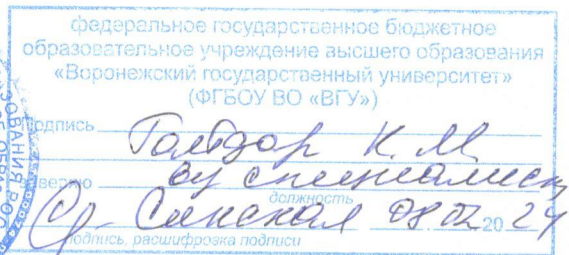 федеральное государственное бюджетное
образовательное учреждение высшего образования
«Воронежский государственный университет»
(ФГБОУ ВО «ВГУ»)
подпись К. М
заверяю вд специалист
должность
Сенская 08 02 20 24
подпись, расшифровка подписи